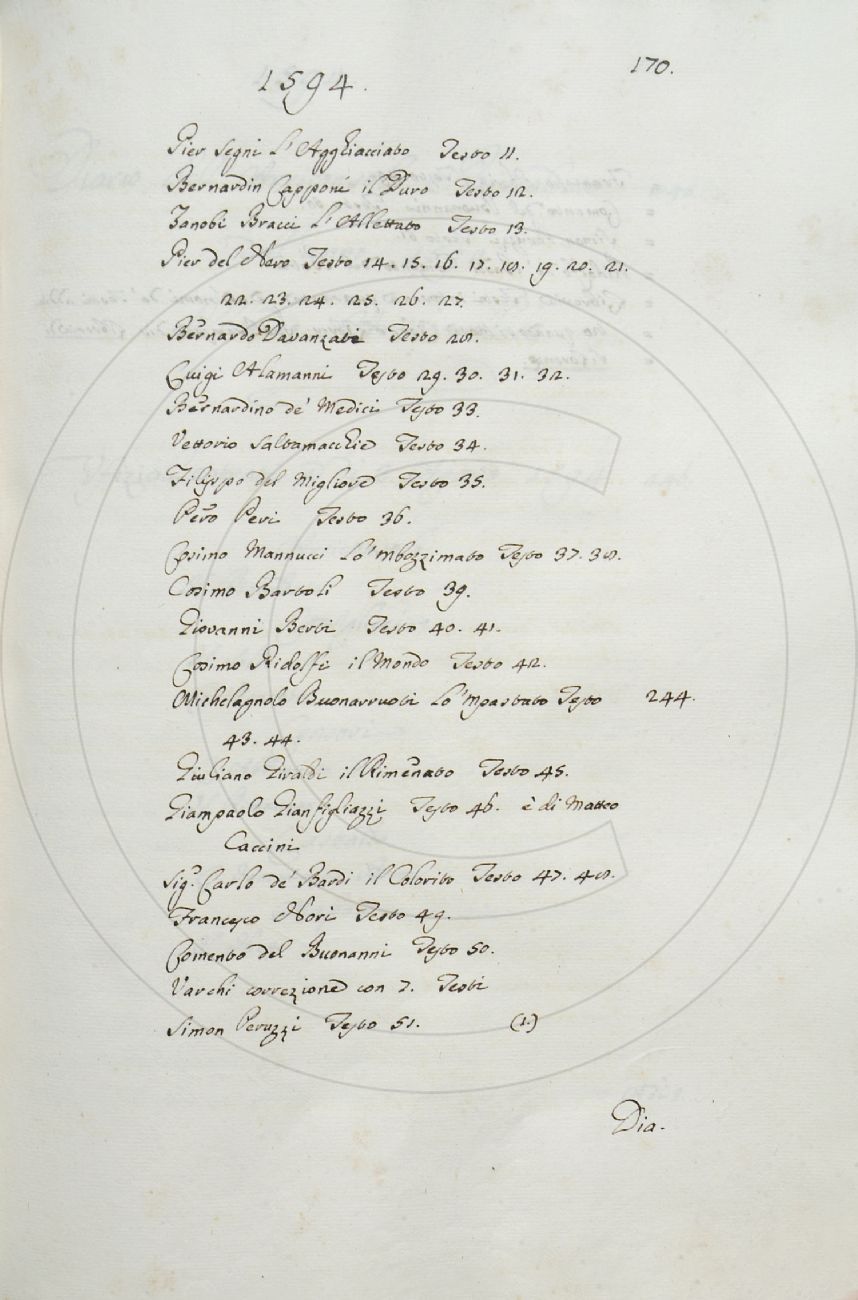 170.
1594.
Pier Segni L'Agghiacciato Testo 11.
Bernardin Capponi il Duro Testo 12.
Zanobi Bracci L'Allettato Testo 13.
Pier del Nero Testo 14. 15. 16. 17. 18. 19. 20. 21.
22. 23. 24. 25. 26. 27.
Bernardo Davanzati Testo 28.
Luigi Alamanni Testo 29. 30. 31. 32.
Bernardino de' Medici Testo 33.
Vettorio Saltamacchie Testo 34.
Filippo del Migliore Testo 35.
Pero Peri Testo 36.
Cosimo Mannucci Lo'mbozzimato Testo 37. 38.
Cosimo Bartoli Testo 39.
Giovanni Berti Testo 40. 41.
Cosimo Ridolfi il Mondo Testo 42.
Michelagnolo Buonarruoti Lo'mpastato Testo 244.
43. 44.
Giuliano Giraldi il Rimenato Testo 45.
Giampaolo Gianfigliazzi Testo 46. è di Matteo
Caccini
Sig. Carlo de' Bardi il Colorito Testo 47. 48.
Francesco Nori Testo 49.
Comento del Buonanni Testo 50.
Varchi correzione con 7. Testi
Simon Peruzzi Testo 51. (1.)
Dia-